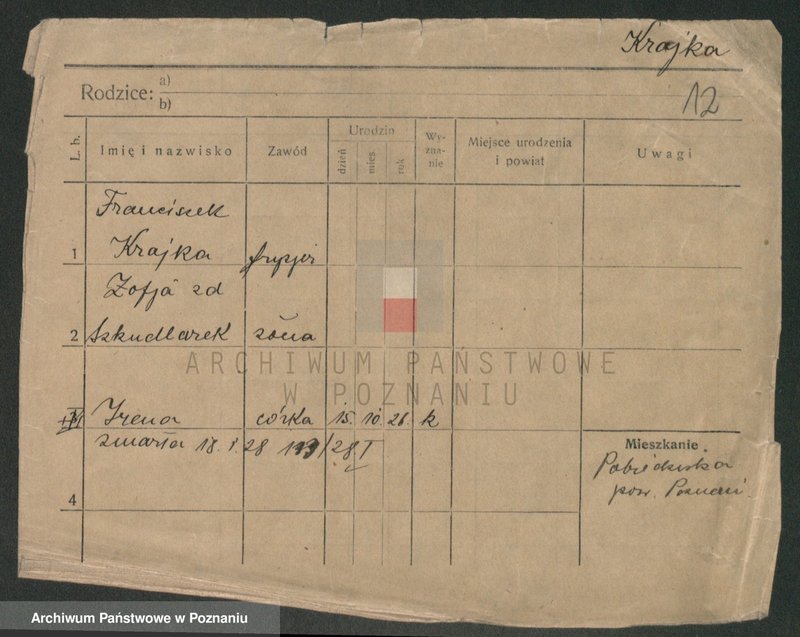 Krajka
12
Rodzice: a)
b)
L. b.
Imię i nazwisko
Zawód
Urodzin
dzień
mies.
rok
Wy-
zna-
nie
Miejsce urodzenia
i powiat
Uwagi
Franciszek
1 Krajka fryzjer
Zofja zd
2 Szkudlarek żona
Irena córka 15. 10. 26. k
zmarła 18. I. 28 113/28 I
4
Mieszkanie
Pobiedziska
pow. Poznań
ARCHIWUM PAŃSTWOWE
W POZNANIU
Archiwum Państwowe w Poznaniu